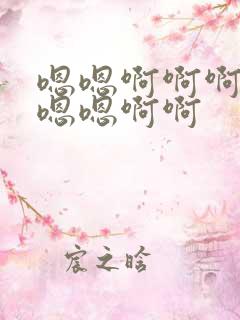 嗯嗯啊啊啊
嗯嗯啊啊
宸之晗